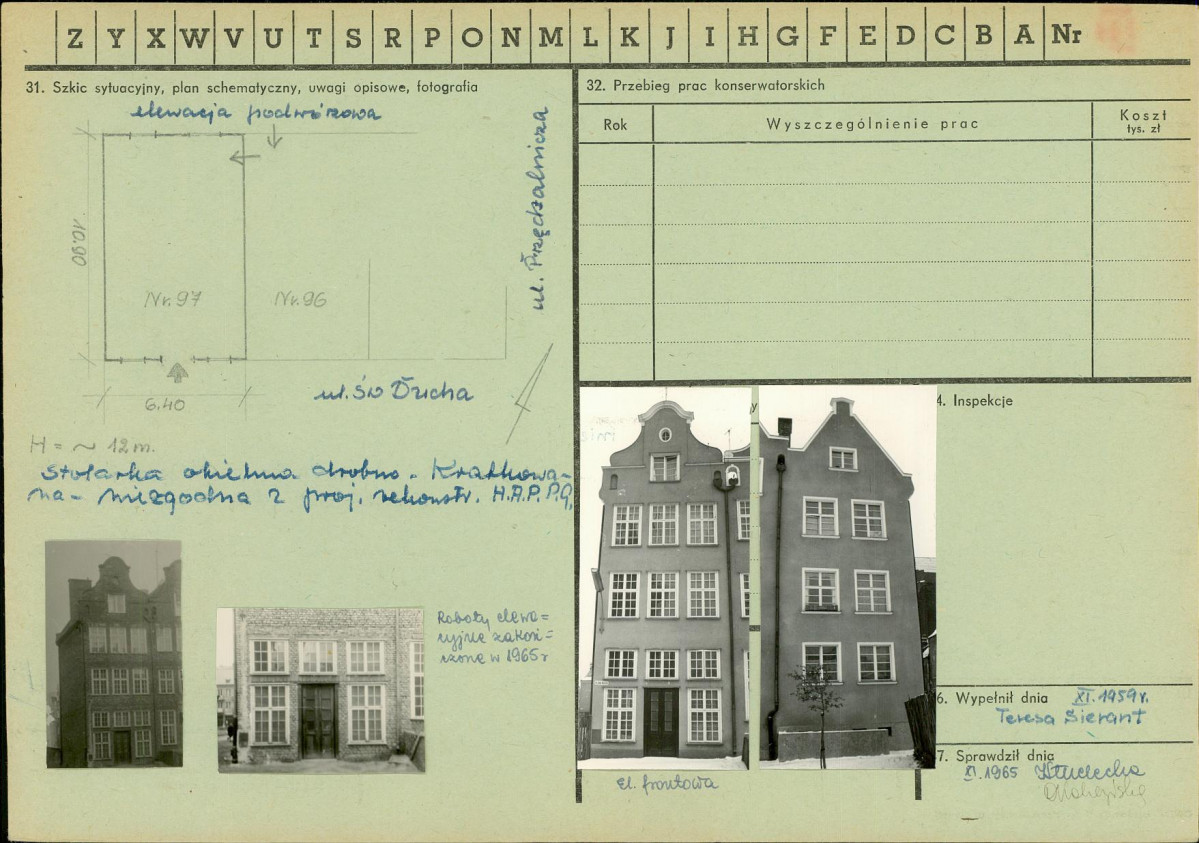 Z Y X W V U T S R P O N M L K J I H G F E D C B A Nr
31. Szkic sytuacyjny, plan schematyczny, uwagi opisowe, fotografia
elewacja podwórzowa
ul. Przędzalnicza
10.90
Nr. 97
Nr. 96
6.40
ul. św Ducha
H = ~ 12 m.
Stolarka okienna drobno - Kratkowa-
na - niezgodna z proj. rekonstr. H.A.P.P.G.
Roboty elewa=
cyjne zakoń=
czone w 1965 r
32. Przebieg prac konserwatorskich
Rok
Wyszczególnienie prac
Koszt
tys. zł
el. frontowa
4. Inspekcje
6. Wypełnił dnia XI. 1959 r.
Teresa Sierant
7. Sprawdził dnia
XI. 1965